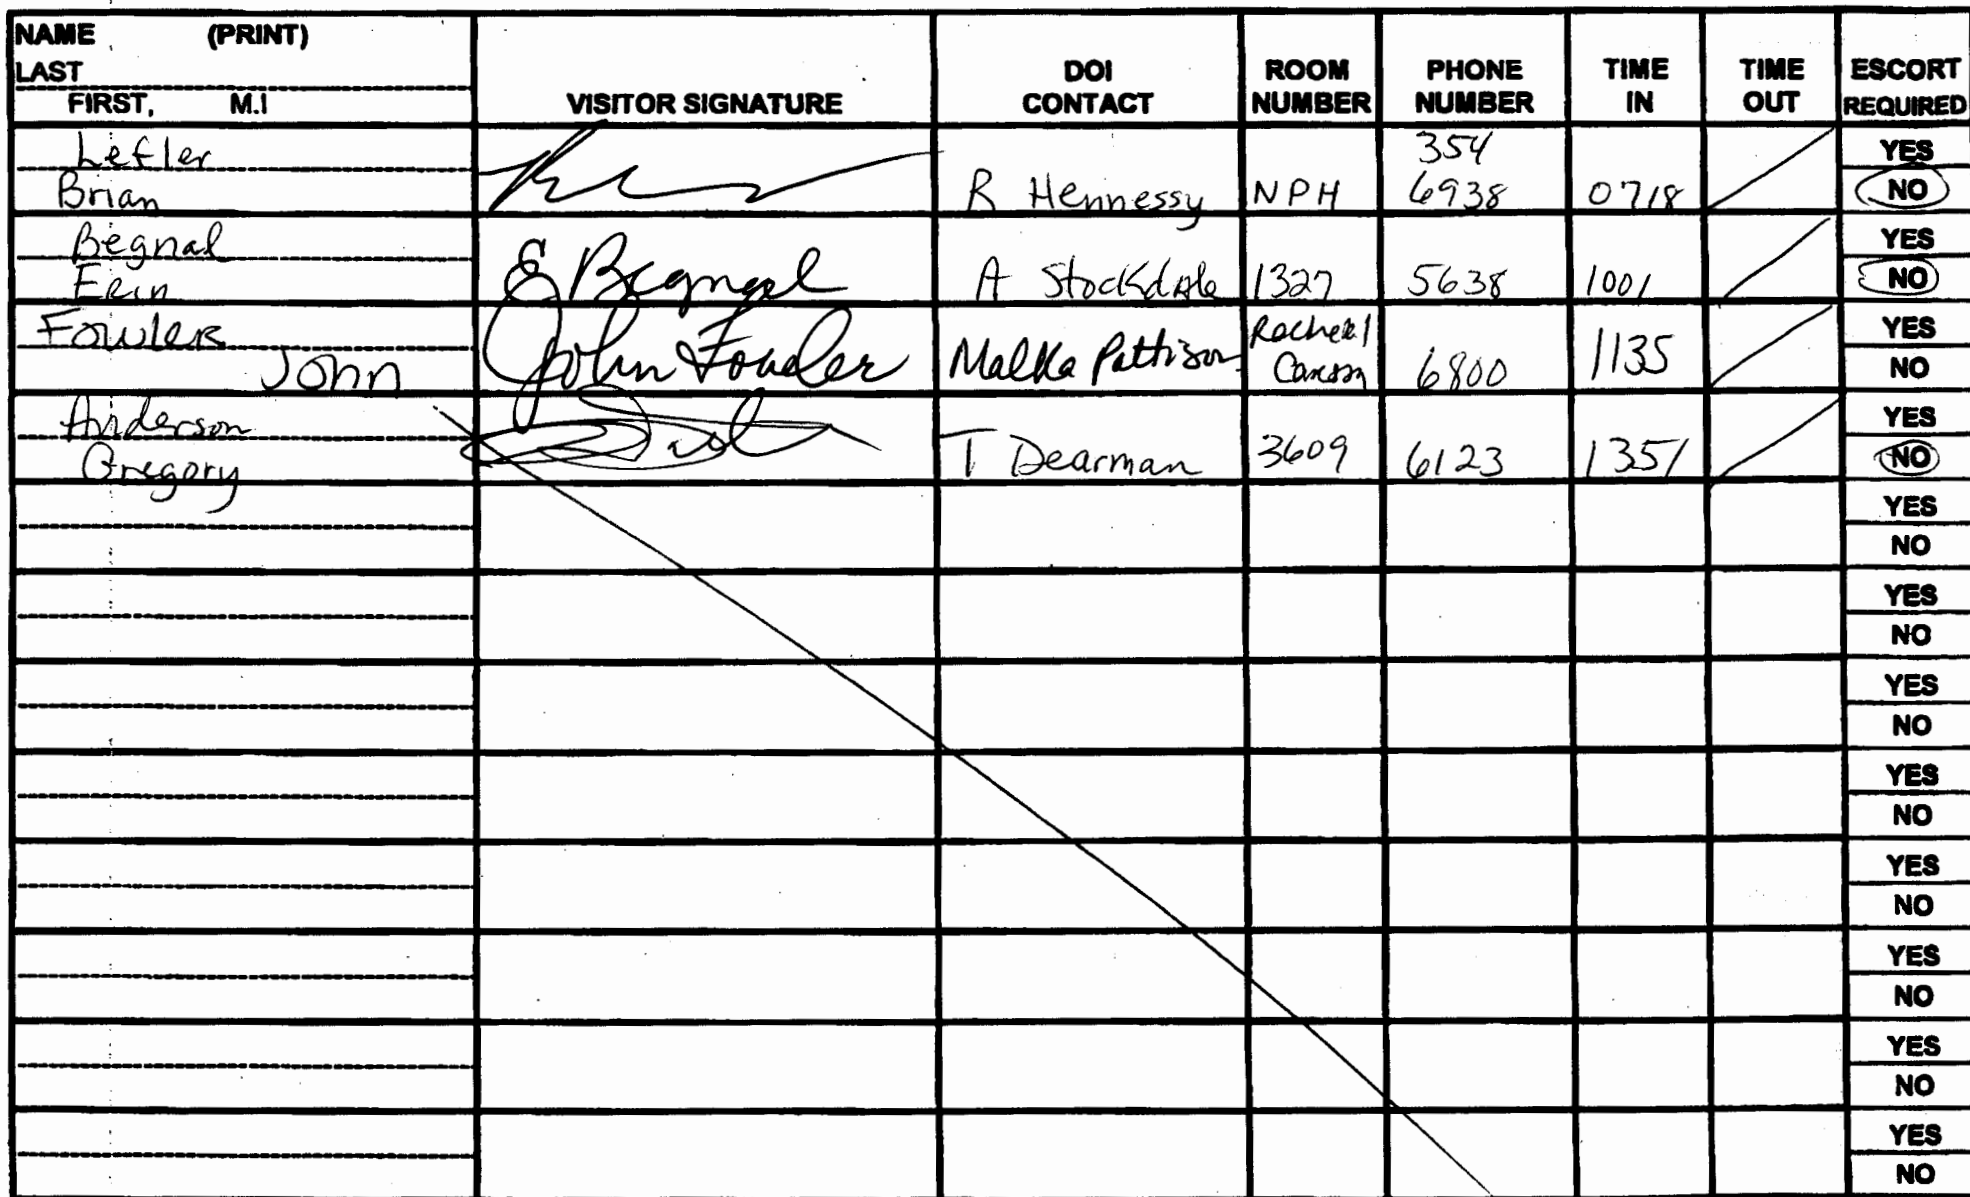 NAME (PRINT)
LAST
FIRST, M.I
VISITOR SIGNATURE
DOI
CONTACT
ROOM
NUMBER
PHONE
NUMBER
TIME
IN
TIME
OUT
ESCORT
REQUIRED
Lefler
Brian
R Hennessy
NPH
354
6938
0718
YES
NO
Begnal
Erin
E Begnal
A Stockdale
1327
5638
1001
YES
NO
Fowler
John
John Fowler
Malka Pattison
Rachel
Carson
6800
1135
YES
NO
Anderson
Gregory
T Dearman
3609
6123
1351
YES
NO
YES
NO
YES
NO
YES
NO
YES
NO
YES
NO
YES
NO
YES
NO
YES
NO